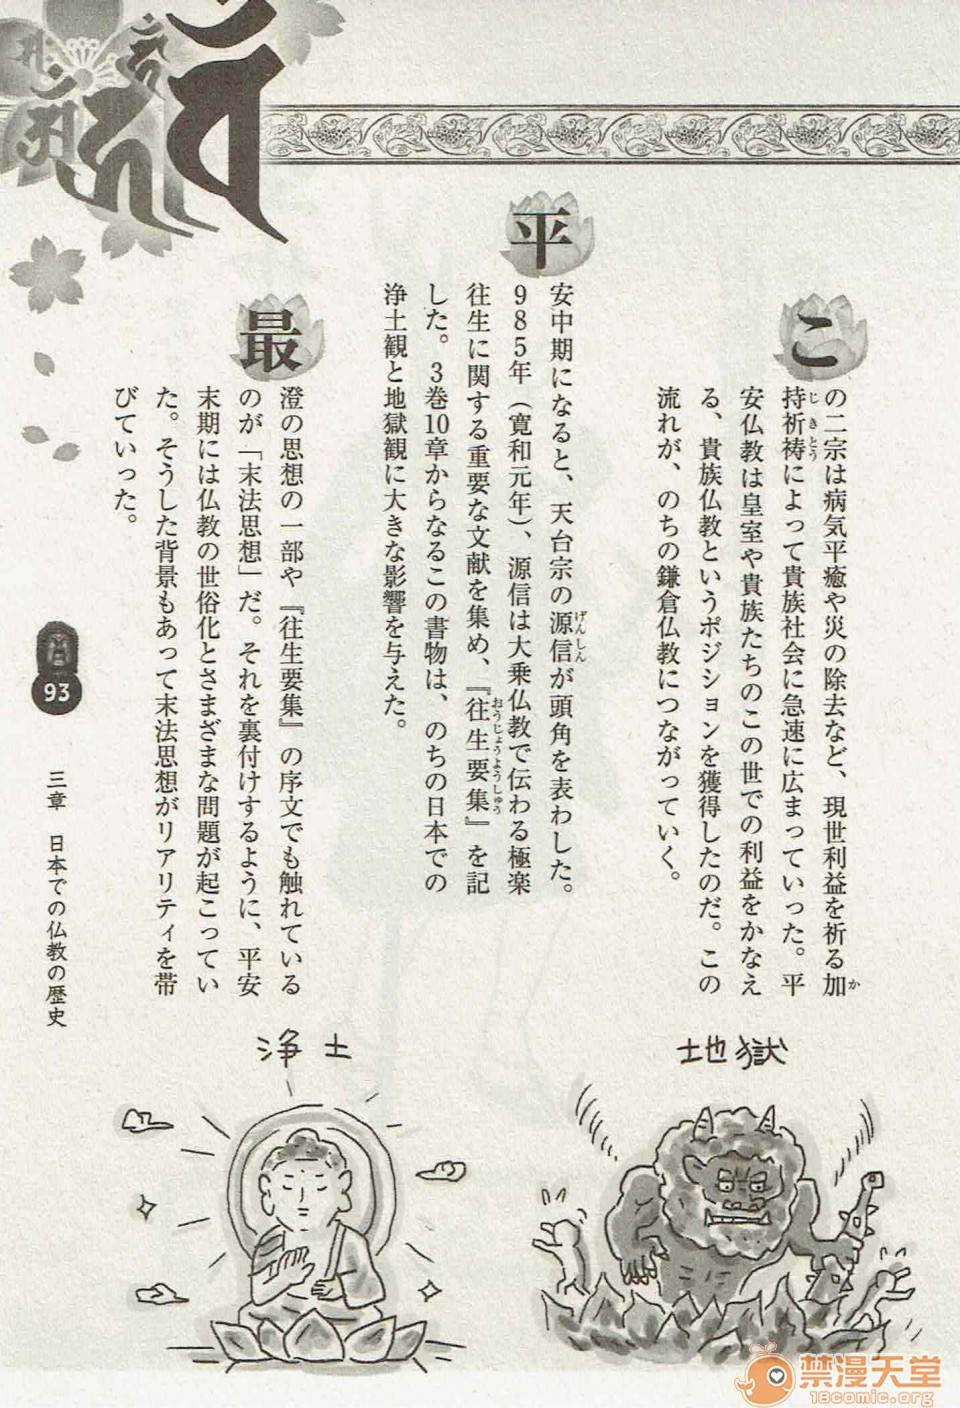 この二宗は病気平癒や災の除去など、現世利益を祈る加
持祈祷によって貴族社会に急速に広まっていった。平
安仏教は皇室や貴族たちのこの世での利益をかなえ
る、貴族仏教というポジションを獲得したのだ。この
流れが、のちの鎌倉仏教につながっていく。
平安中期になると、天台宗の源信が頭角を表わした。
985年（寛和元年）、源信は大乗仏教で伝わる極楽
往生に関する重要な文献を集め、『往生要集』を記
した。3巻10章からなるこの書物は、のちの日本での
浄土観と地獄観に大きな影響を与えた。
最澄の思想の一部や『往生要集』の序文でも触れている
のが「末法思想」だ。それを裏付けするように、平安
末期には仏教の世俗化とさまざまな問題が起こってい
た。そうした背景もあって末法思想がリアリティを帯
びていった。
か
じきとう
げんしん
おうじょうようしゅう
地獄
浄土
93
三章 日本での仏教の歴史
禁漫天堂
18comic.org